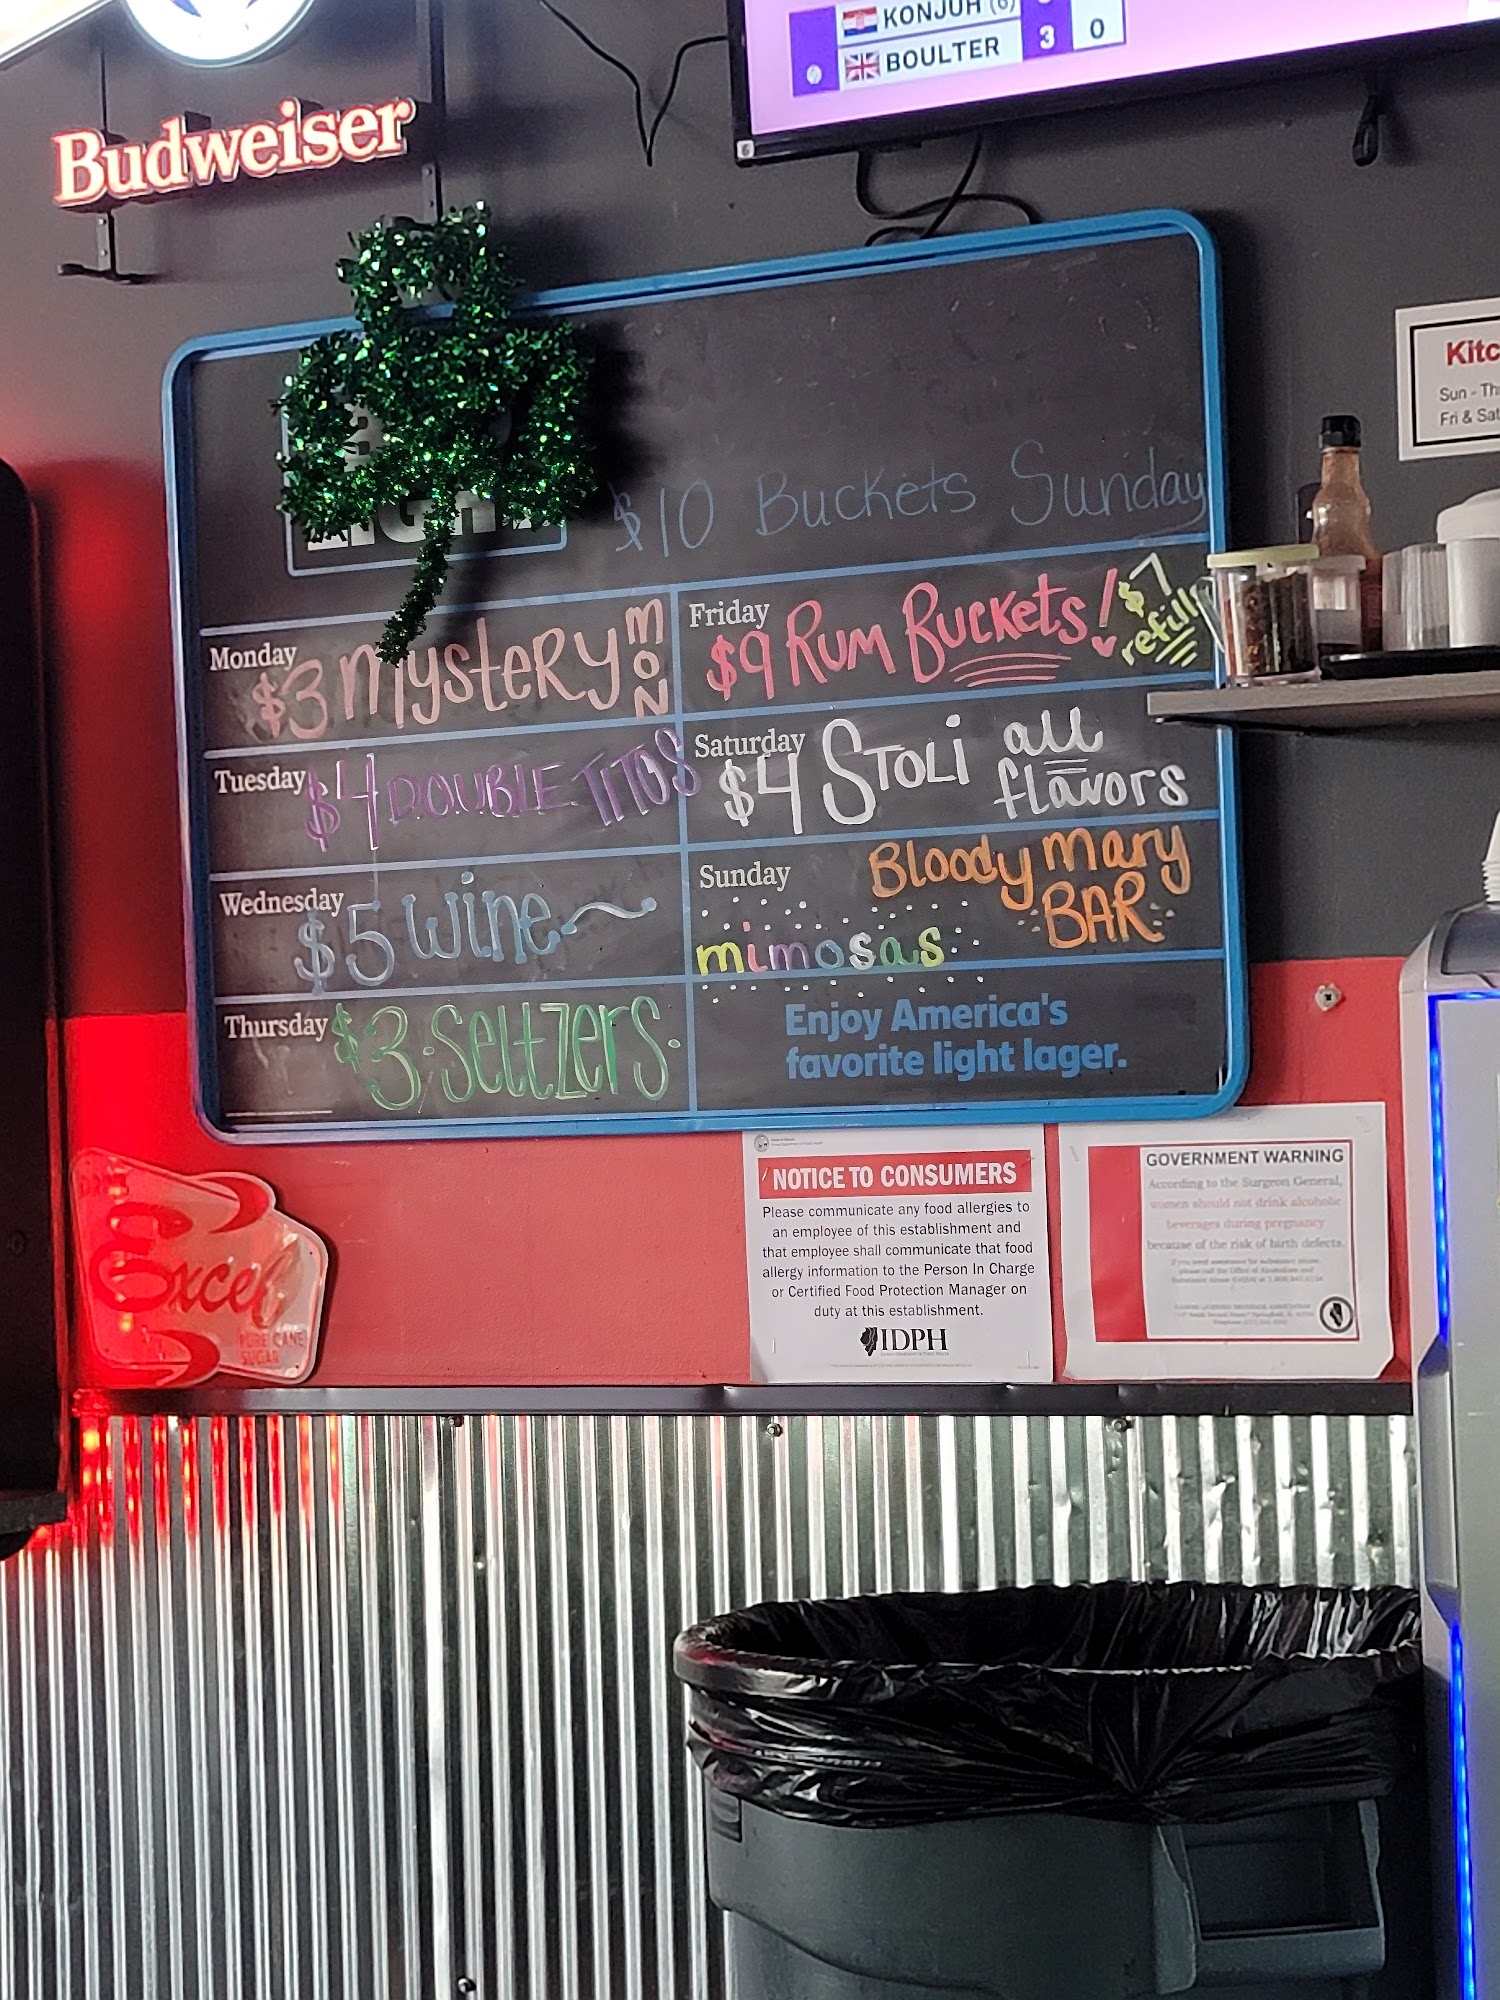 KONJUH (6)
BOULTER 3 0
Budweiser
$10 Buckets Sunday
Monday
$3 mysteRy MON
Tuesday
$4 DOUBLE TITOS
Wednesday
$5 wine
Thursday
$3 Seltzers
Friday
$9 Rum Buckets! $7
refill
Saturday
$4 Stoli all
flavors
Sunday
Bloody mary
BAR
mimosas
Enjoy America's
favorite light lager.
Kitc
Sun - Th
Fri & Sat
Excel
PURE CANE
SUGAR
NOTICE TO CONSUMERS
Please communicate any food allergies to
an employee of this establishment and
that employee shall communicate that food
allergy information to the Person In Charge
or Certified Food Protection Manager on
duty at this establishment.
IDPH
GOVERNMENT WARNING
According to the Surgeon General,
women should not drink alcoholic
beverages during pregnancy
because of the risk of birth defects.